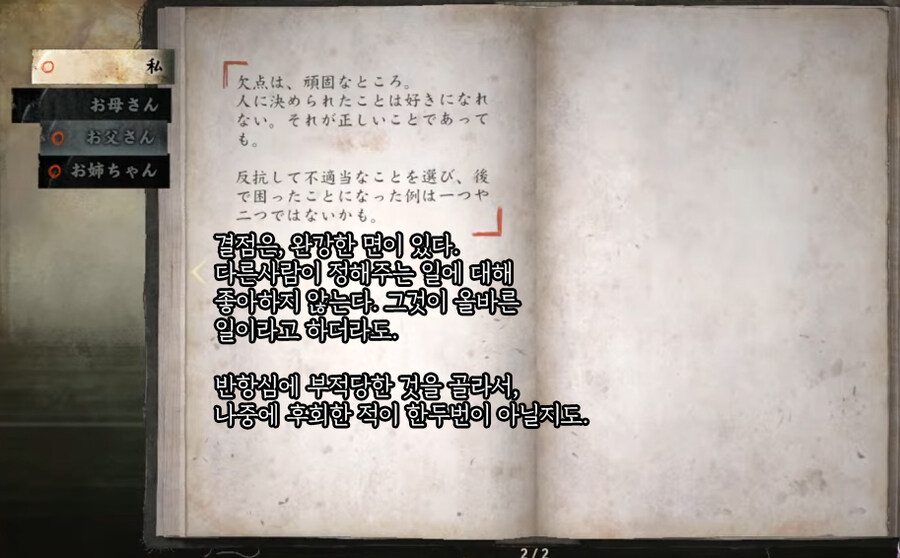 私
お母さん
お父さん
お姉ちゃん
欠点は、頑固なところ。
人に決められたことは好きになれ
ない。それが正しいことであって
も。
反抗して不適当なことを選び、後
で困ったことになった例は一つや
二つではないかも。
결점은, 완강한 면이 있다.
다른사람이 정해주는 일에 대해
좋아하지 않는다. 그것이 올바른
일이라고 하더라도.
반항심에 부적당한 것을 골라서,
나중에 후회한 적이 한두번이 아닐지도.
2/2